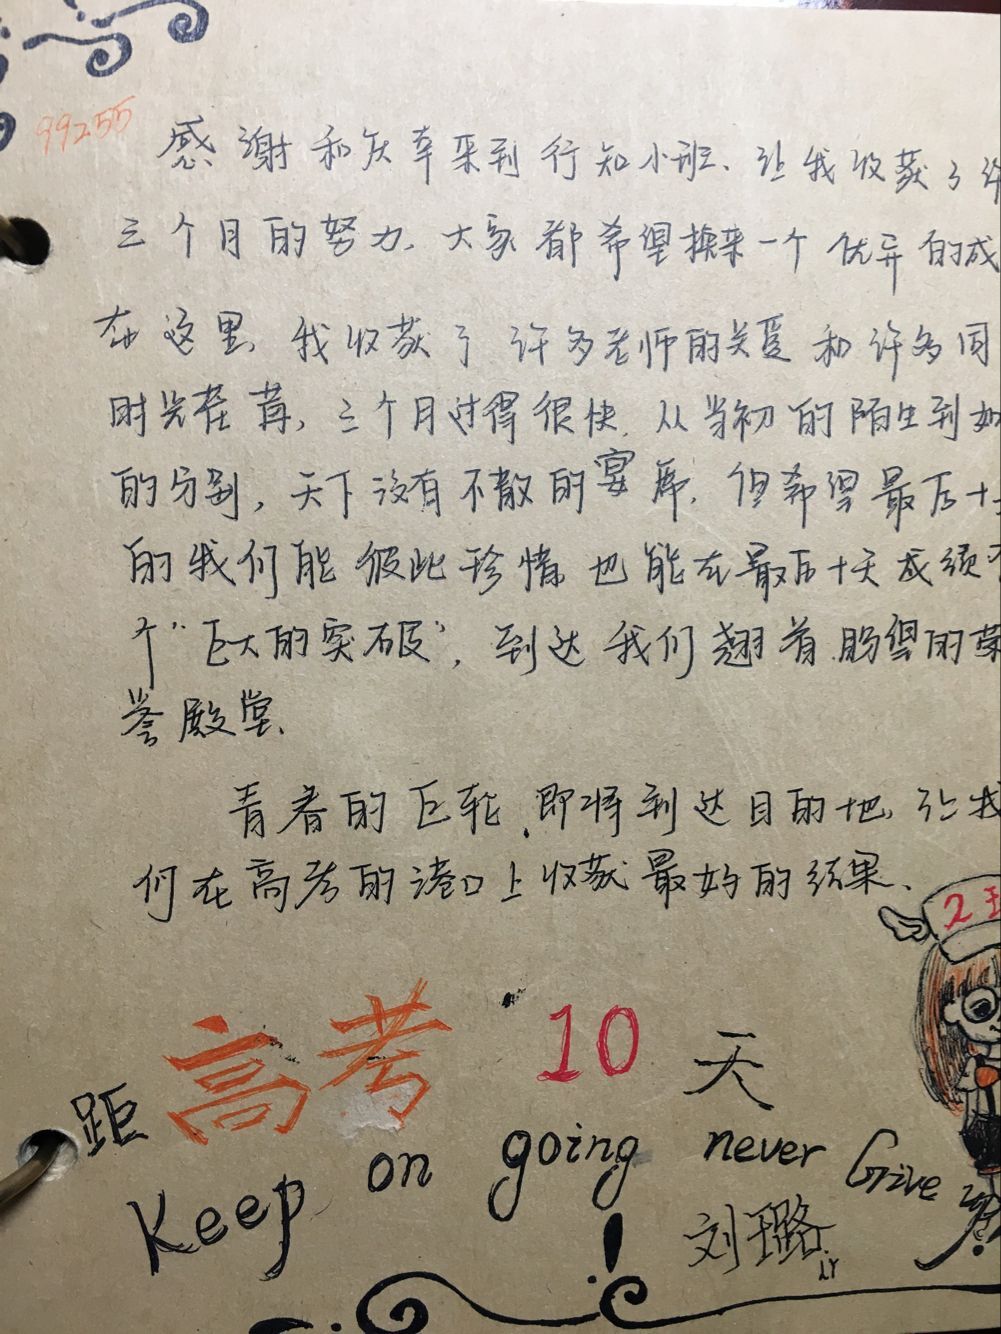 99255
感谢和庆幸来到行知小班、让我收获了许
三个月的努力、大家都希望换来一个优异的成
在这里、我收获了许多老师的关爱和许多同
时光荏苒,三个月过得很快、从当初的陌生到如
的分别,天下没有不散的宴席、但希望最后十
的我们能彼此珍惜也能在最后十天成绩
个“巨大的突破”,到达我们翘首盼望的荣
誉殿堂、
青春的巨轮、即将到达目的地,让我
们在高考的港口上收获最好的结果、
2班
距高考10天
Keep on going never Give
!
刘璐